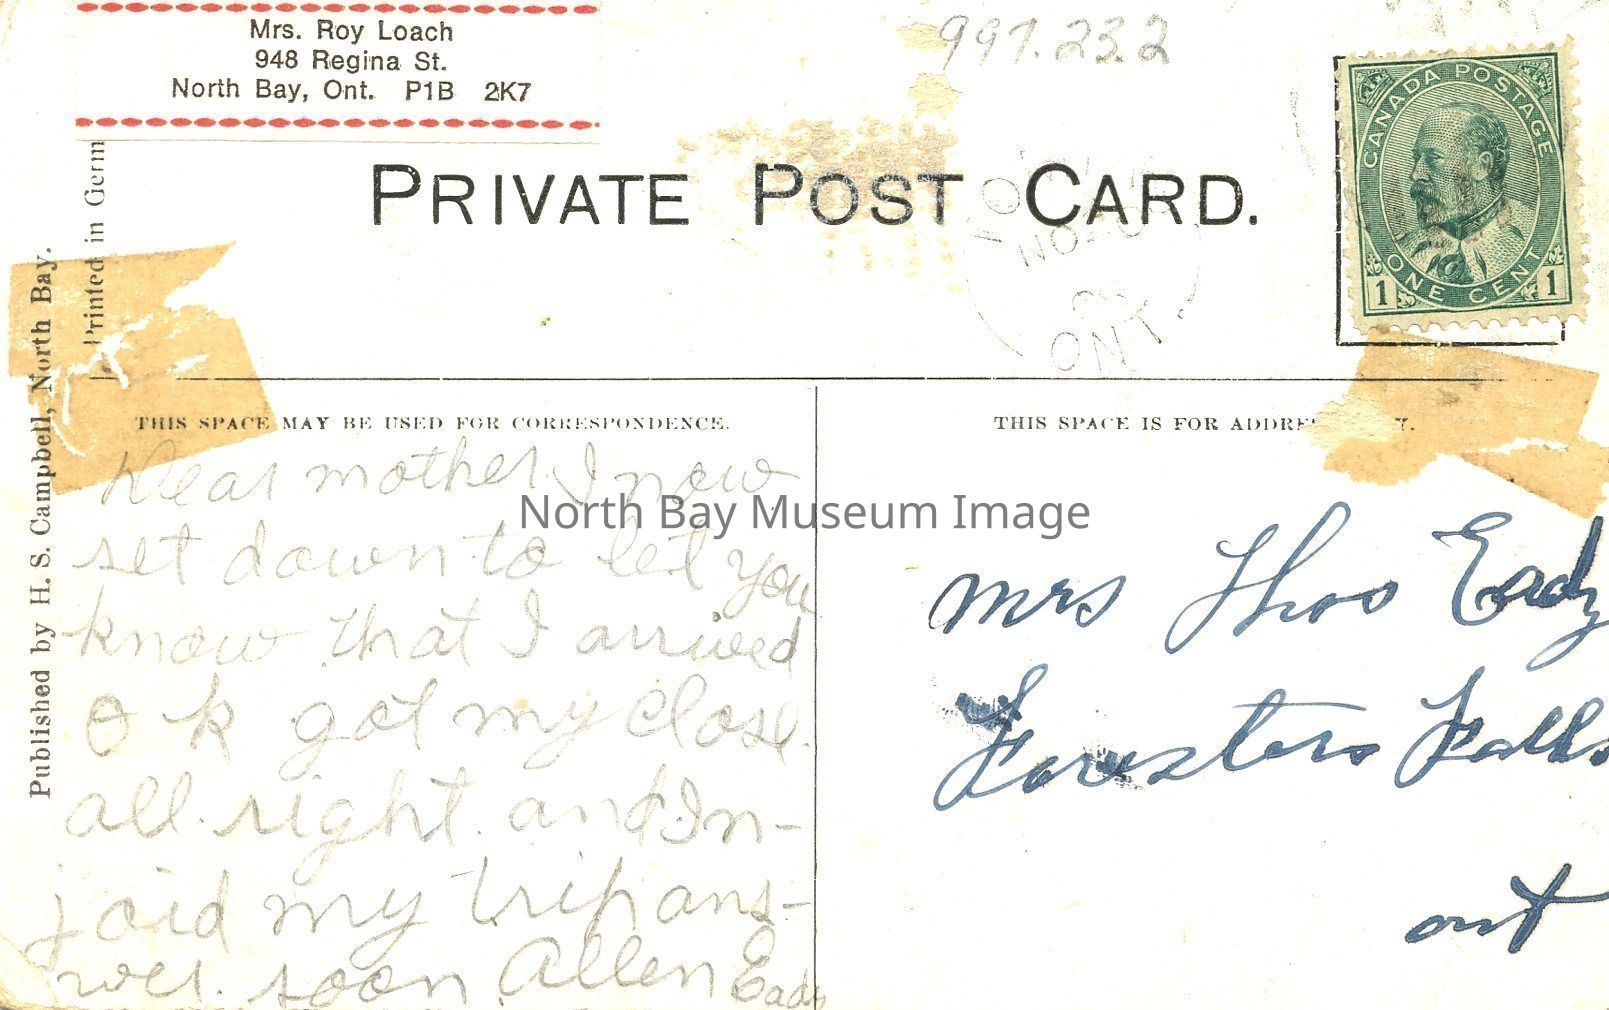 Mrs. Roy Loach
948 Regina St.
North Bay, Ont. P1B 2K7
997.23.2
CANADA POSTAGE
ONE CENT
1 1
PRIVATE POST CARD.
NO
ONT.
Printed in Germ
Published by H. S. Campbell, North Bay.
THIS SPACE MAY BE USED FOR CORRESPONDENCE.
Dear mother I now
set down to let you
know that I arrived
O k got my close
all right and In-
joid my trip ans-
wer soon Allen Eady
THIS SPACE IS FOR ADDRE Y.
Mrs Thos Eady
Foresters Falls
ont
North Bay Museum Image